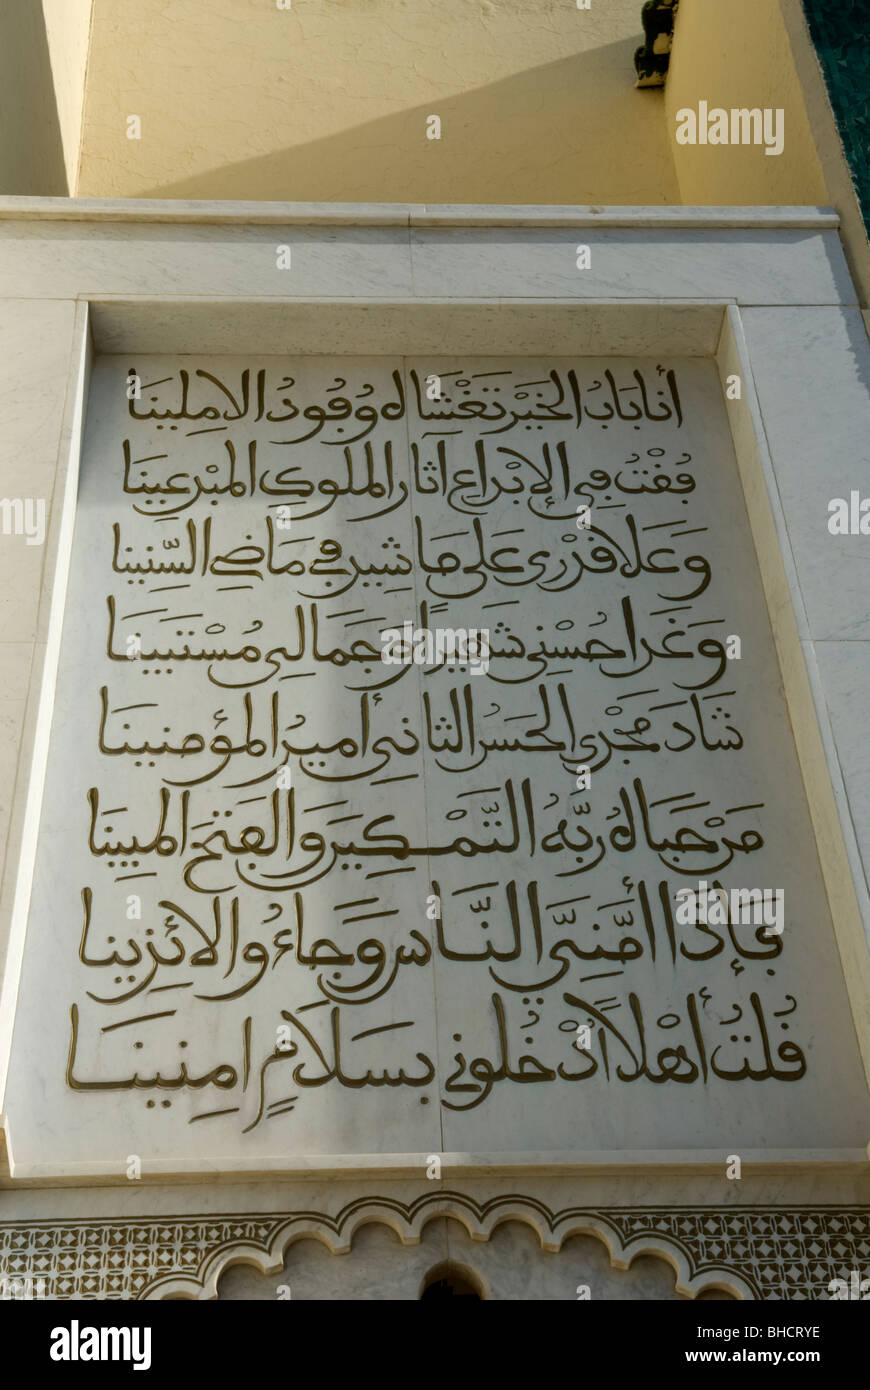 أنا بابُ الخَيْر تَغْشَاه وُفُودُ الامِلِينَا
فُقْتُ فِي الإبْداع آثار الملوك المبْدعِينَا
وَعَلا قَدْري عَلى مَا شِيد في مَاضِي السِّنِينا
وَغَدا حُسْنِي شَهيراً وجَمَالي مُسْتَبينَا
شَادَ مَجْدي الحَسَنُ الثانِي أميرُ المؤمنينَا
مَرْحَبا هُ رَبّهُ التَّمْكِينَ وَالفَتْحَ المبِينَا
فَإذَا أمَّنِيَ النَّاس وَجَاءُوا لائِذِينا
قُلتُ أهْلاً ادْخُلوني بسَلاَمٍ امِنِينَا
alamy
Image ID: BHCRYE
www.alamy.com